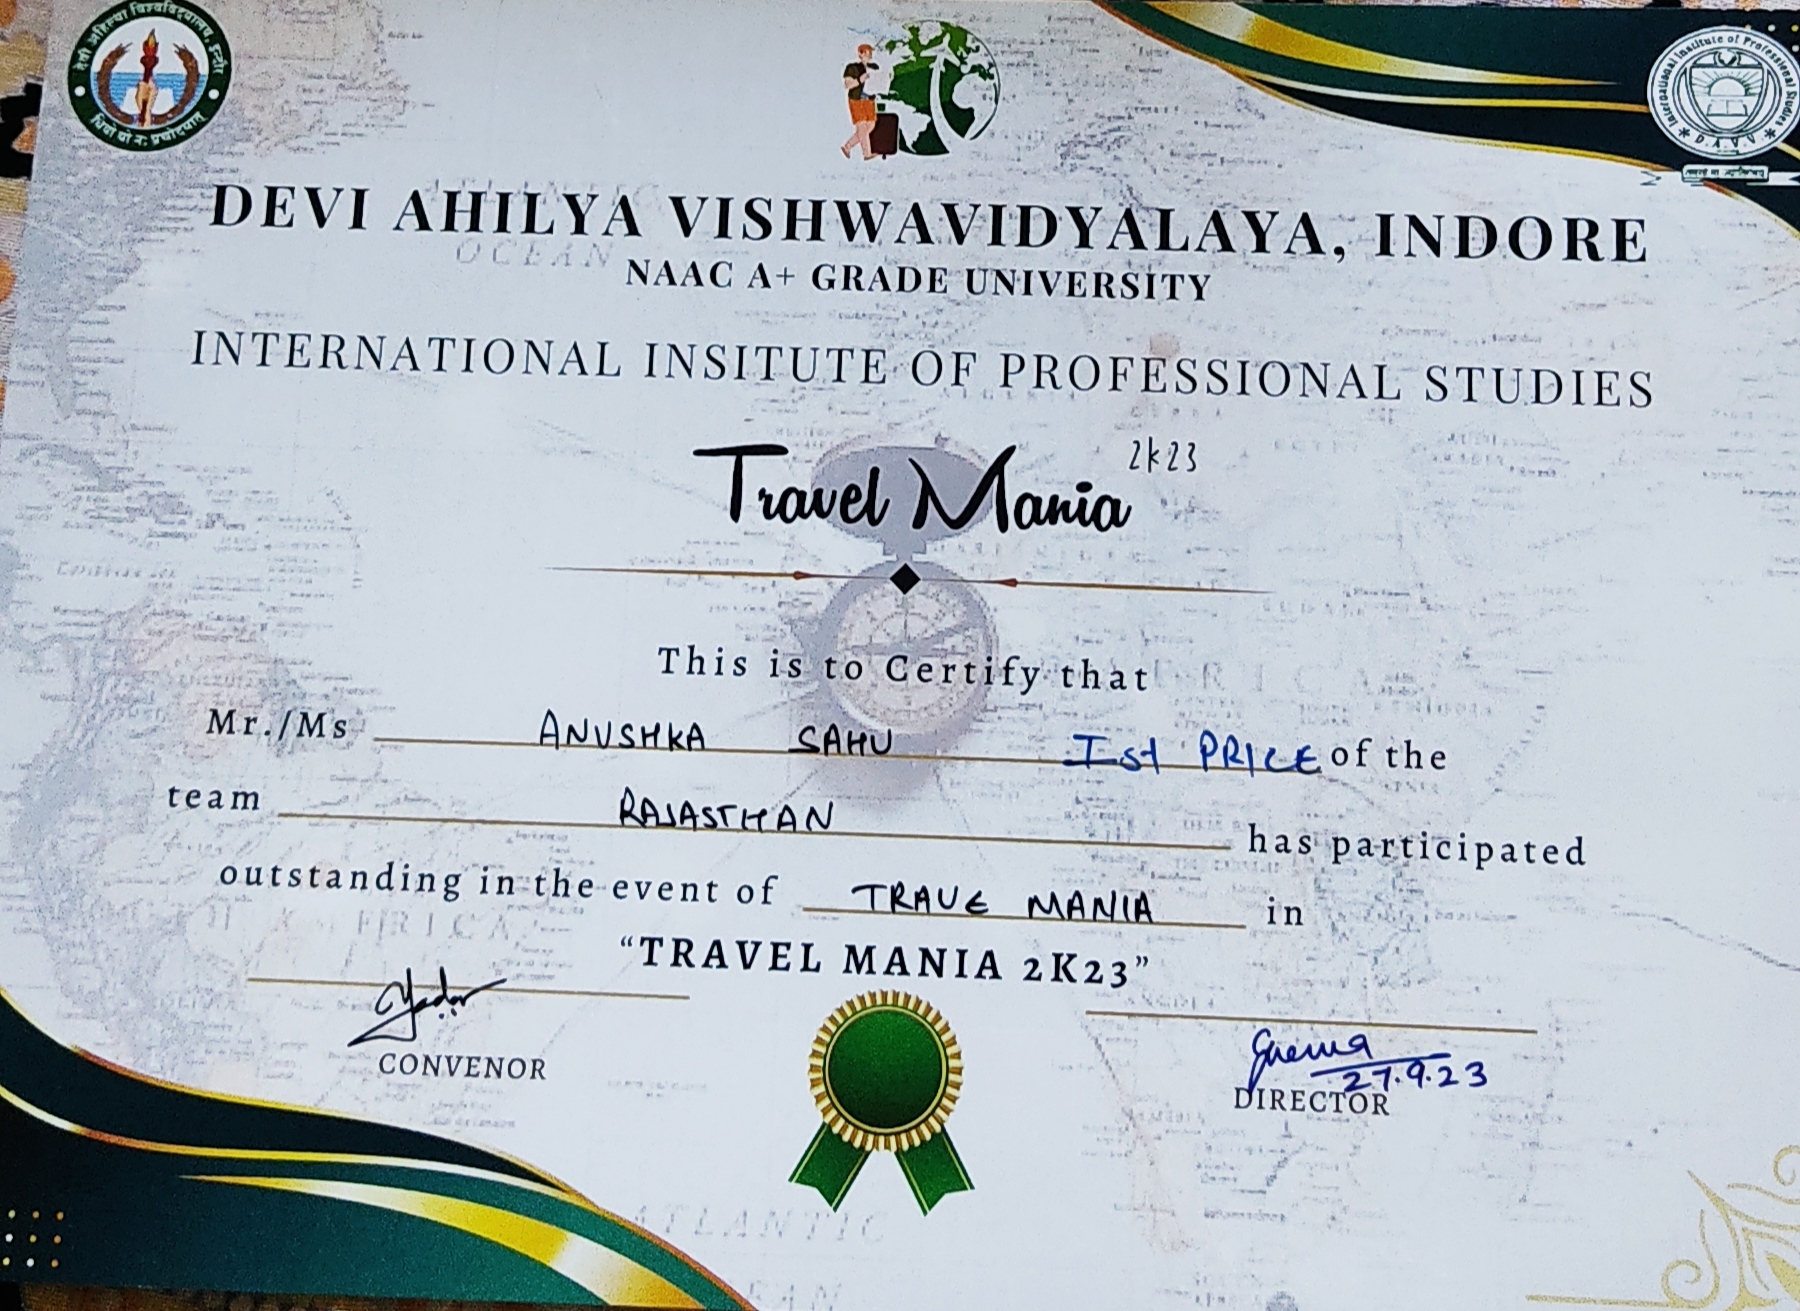 देवी अहिल्या विश्वविद्यालय, इन्दौर
धियो यो नः प्रचोदयात्
International Institute of Professional Studies
D.A.V.V.
DEVI AHILYA VISHWAVIDYALAYA, INDORE
OCEAN
NAAC A+ GRADE UNIVERSITY
INTERNATIONAL INSITUTE OF PROFESSIONAL STUDIES
Travel Mania 2k23
This is to Certify that
Mr./Ms ANUSHKA SAHU Ist PRICE of the
team RAJASTHAN has participated
outstanding in the event of TRAVE MANIA in
"TRAVEL MANIA 2K23"
Yadav
27.9.23
CONVENOR DIRECTOR
ATLANTIC